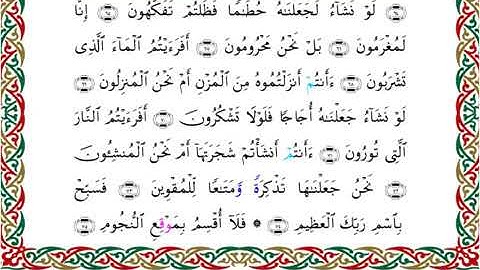 ٦٤ لَوۡ نَشَآءُ لَجَعَلۡنَٰهُ حُطَٰمٗا فَظَلۡتُمۡ تَفَكَّهُونَ ٦٥ إِنَّا
لَمُغۡرَمُونَ ٦٦ بَلۡ نَحۡنُ مَحۡرُومُونَ ٦٧ أَفَرَءَيۡتُمُ ٱلۡمَآءَ ٱلَّذِي
تَشۡرَبُونَ ٦٨ ءَأَنتُمۡ أَنزَلۡتُمُوهُ مِنَ ٱلۡمُزۡنِ أَمۡ نَحۡنُ ٱلۡمُنزِلُونَ ٦٩
لَوۡ نَشَآءُ جَعَلۡنَٰهُ أُجَاجٗا فَلَوۡلَا تَشۡكُرُونَ ٧٠ أَفَرَءَيۡتُمُ ٱلنَّارَ
ٱلَّتِي تُورُونَ ٧١ ءَأَنتُمۡ أَنشَأۡتُمۡ شَجَرَتَهَآ أَمۡ نَحۡنُ ٱلۡمُنشِـُٔونَ
٧٢ نَحۡنُ جَعَلۡنَٰهَا تَذۡكِرَةٗ وَمَتَٰعٗا لِّلۡمُقۡوِينَ ٧٣ فَسَبِّحۡ
بِٱسۡمِ رَبِّكَ ٱلۡعَظِيمِ ٧٤ ۞ فَلَآ أُقۡسِمُ بِمَوۡقِعِ ٱلنُّجُومِ ٧٥